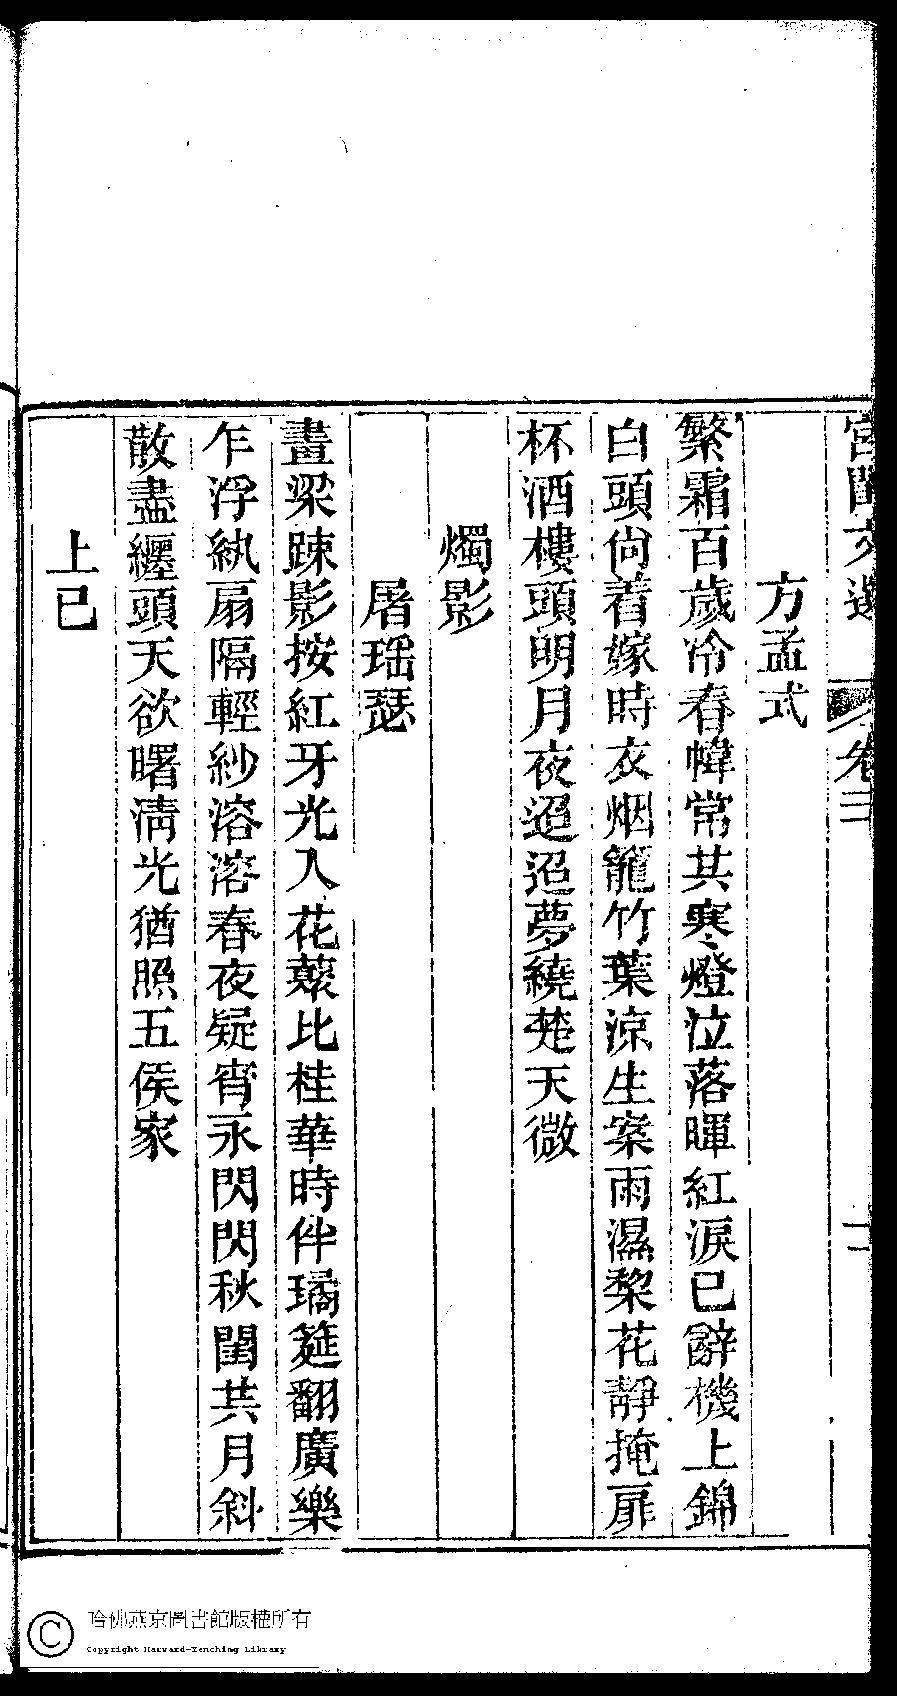 宮閨文選 卷二
方孟式
繁霜百歲冷春幃常共寒燈泣落暉紅淚已辭機上錦
白頭尙着嫁時衣烟籠竹葉涼生案雨濕棃花靜掩扉
杯酒樓頭明月夜迢迢夢繞楚天微
燭影
屠瑶瑟
畫梁疎影按紅牙光入花蘂比桂華時伴璚筵翻廣樂
乍浮紈扇隔輕紗溶溶春夜疑宵永閃閃秋閨共月斜
散盡纏頭天欲曙淸光猶照五侯家
上巳
哈佛燕京圖書館版權所有
Copyright Harvard-Yenching Library